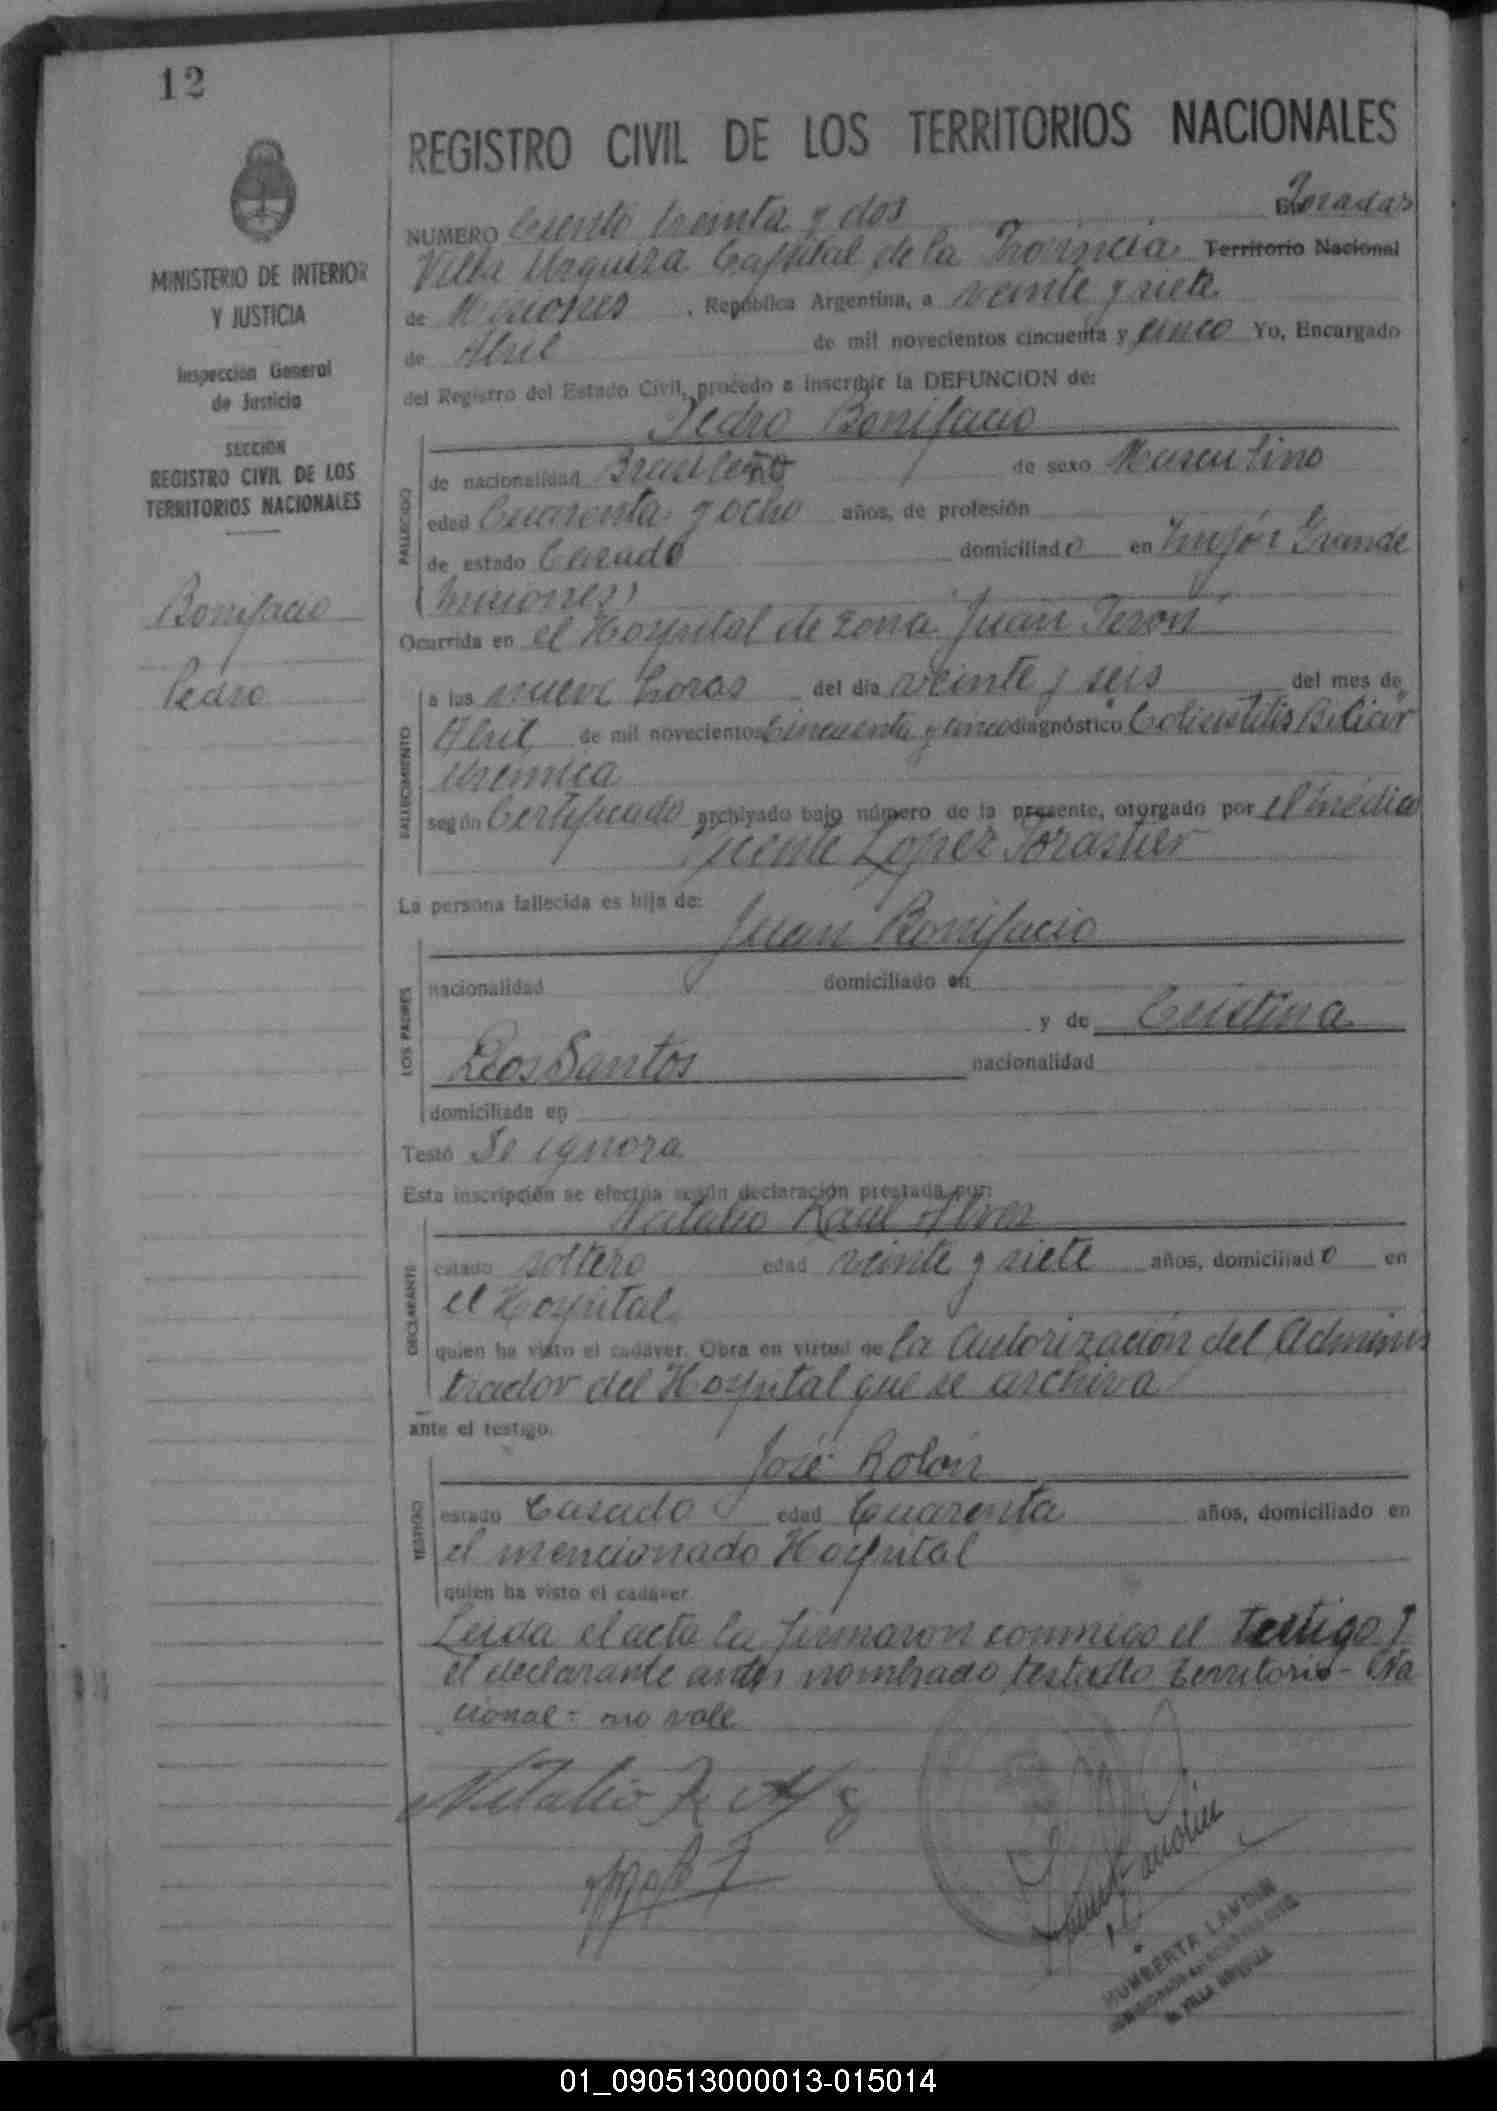 12
REGISTRO CIVIL DE LOS TERRITORIOS NACIONALES
MINISTERIO DE INTERIOR
Y JUSTICIA
Inspección General
de Justicia
SECCION
REGISTRO CIVIL DE LOS
TERRITORIOS NACIONALES
Bonifacio
Pedro
NUMERO Ciento treinta y dos En Posadas
Villa Urquiza Capital de la Provincia Territorio Nacional
de Misiones, República Argentina, a veinte y siete
de Abril de mil novecientos cincuenta y cinco Yo, Encargado
del Registro del Estado Civil, procedo a inscribir la DEFUNCION de:
Pedro Bonifacio
FALLECIDO
de nacionalidad Brasileño de sexo Masculino
edad Cuarenta y ocho años, de profesión
de estado Casado domiciliado en Grande
Misiones
Ocurrida en el Hospital de Zona "Juan Peron"
FALLECIMIENTO
a las nueve horas del día veinte y seis del mes de
Abril de mil novecientos Cincuenta y cinco diagnóstico
Uremica
según Certificado archivado bajo número de la presente, otorgado por el médico
Vicente Lopez
La persona fallecida es hija de:
Juan Bonifacio
LOS PADRES
nacionalidad domiciliado en
y de Cristina
Dos Santos nacionalidad
domiciliada en
Testó Se ignora
Esta inscripción se efectúa según declaración prestada por:
Natalio Raul Alvez
DECLARANTE
estado soltero edad veinte y siete años, domiciliado en
el Hospital
quien ha visto el cadáver. Obra en virtud de la Autorización del Adminis
trador del Hospital que se archiva
ante el testigo.
José Rolón
TESTIGO
estado Casado edad Cuarenta años, domiciliado en
el mencionado Hospital
quien ha visto el cadáver.
Leida el acta la firmaron conmigo el testigo y
el declarante antes nombrado testado Territorio - Na
cional - no vale
HUMBERTA LANDIN
VILLA URQUIZA
01_090513000013-015014